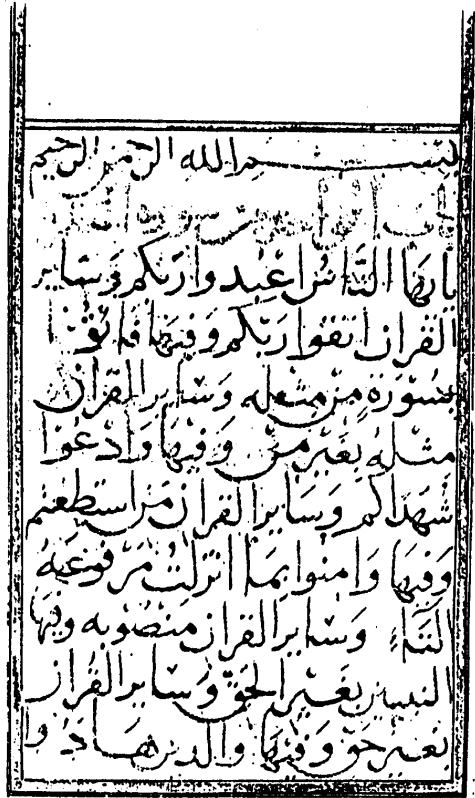 بسم الله الرحمن الرحيم
يايها الناس اعبدوا ربكم وساير
القران اتقوا ربكم وفيها فاتوا
بسورة من مثله وساير القران
مثله بغير من وفيها وادعوا
شهداكم وساير القران من استطعتم
وفيها وامنوا بما انزلت مرفوعه
التاء وساير القران منصوبه وفيها
النبيين بغير الحق وساير القران
بغير حق وفيها والذين هادوا